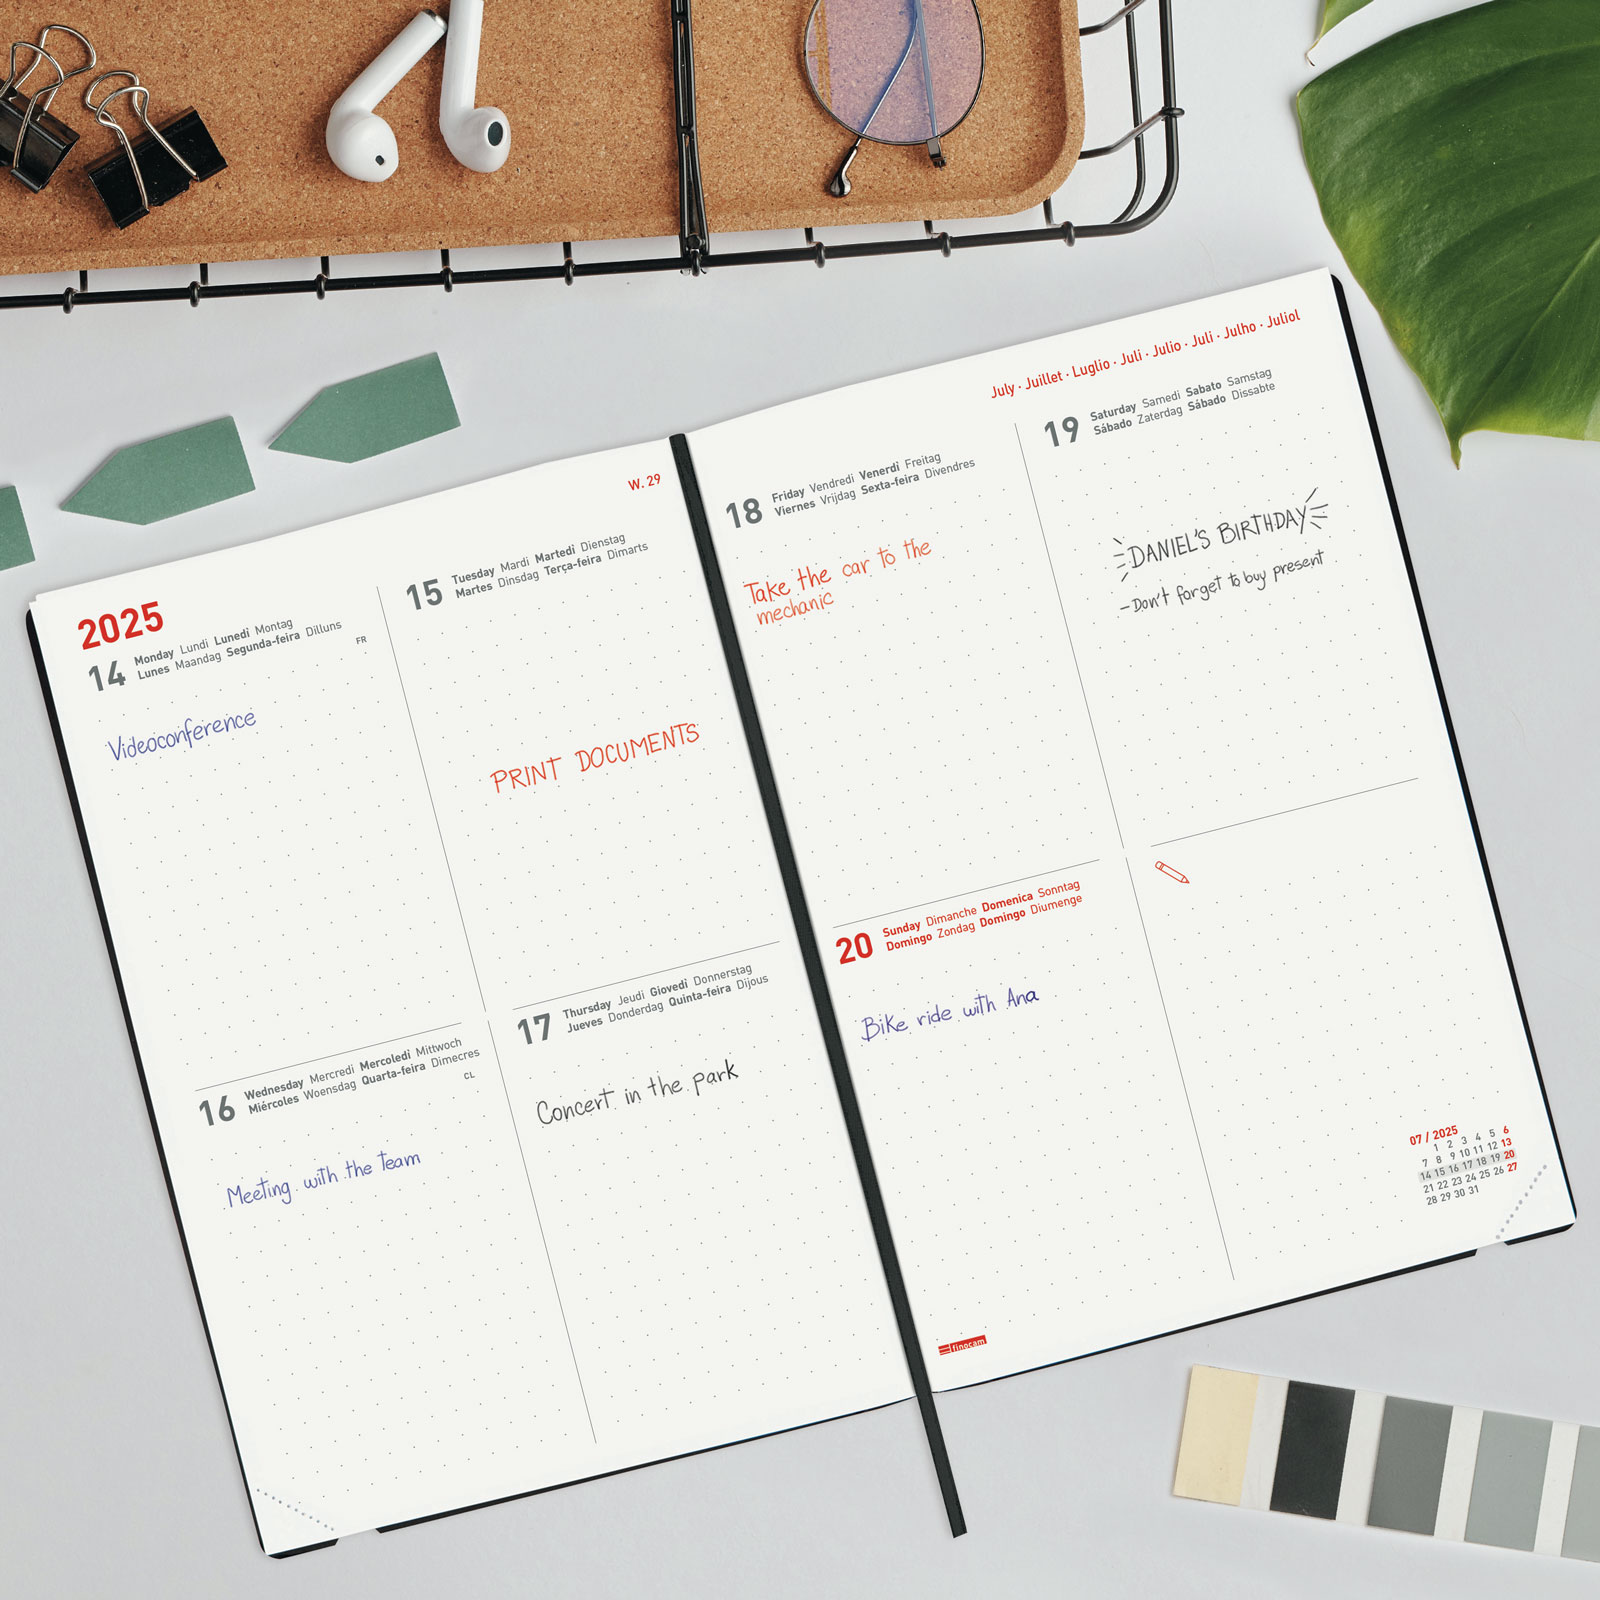 W. 29
2025
14 Monday Lundi Lunedì Montag
Lunes Maandag Segunda-feira Dilluns
FR
Videoconference
15 Tuesday Mardi Martedì Dienstag
Martes Dinsdag Terça-feira Dimarts
PRINT DOCUMENTS
16 Wednesday Mercredi Mercoledì Mittwoch
Miércoles Woensdag Quarta-feira Dimecres
CL
Meeting with the team
17 Thursday Jeudi Giovedì Donnerstag
Jueves Donderdag Quinta-feira Dijous
Concert in the park
July · Juillet · Luglio · Juli · Julio · Juli · Julho · Juliol
18 Friday Vendredi Venerdì Freitag
Viernes Vrijdag Sexta-feira Divendres
Take the car to the
mechanic
19 Saturday Samedi Sabato Samstag
Sábado Zaterdag Sábado Dissabte
DANIEL'S BIRTHDAY
- Don't forget to buy present
20 Sunday Dimanche Domenica Sonntag
Domingo Zondag Domingo Diumenge
Bike ride with Ana
07 / 2025
1 2 3 4 5 6
7 8 9 10 11 12 13
14 15 16 17 18 19 20
21 22 23 24 25 26 27
28 29 30 31
finocam